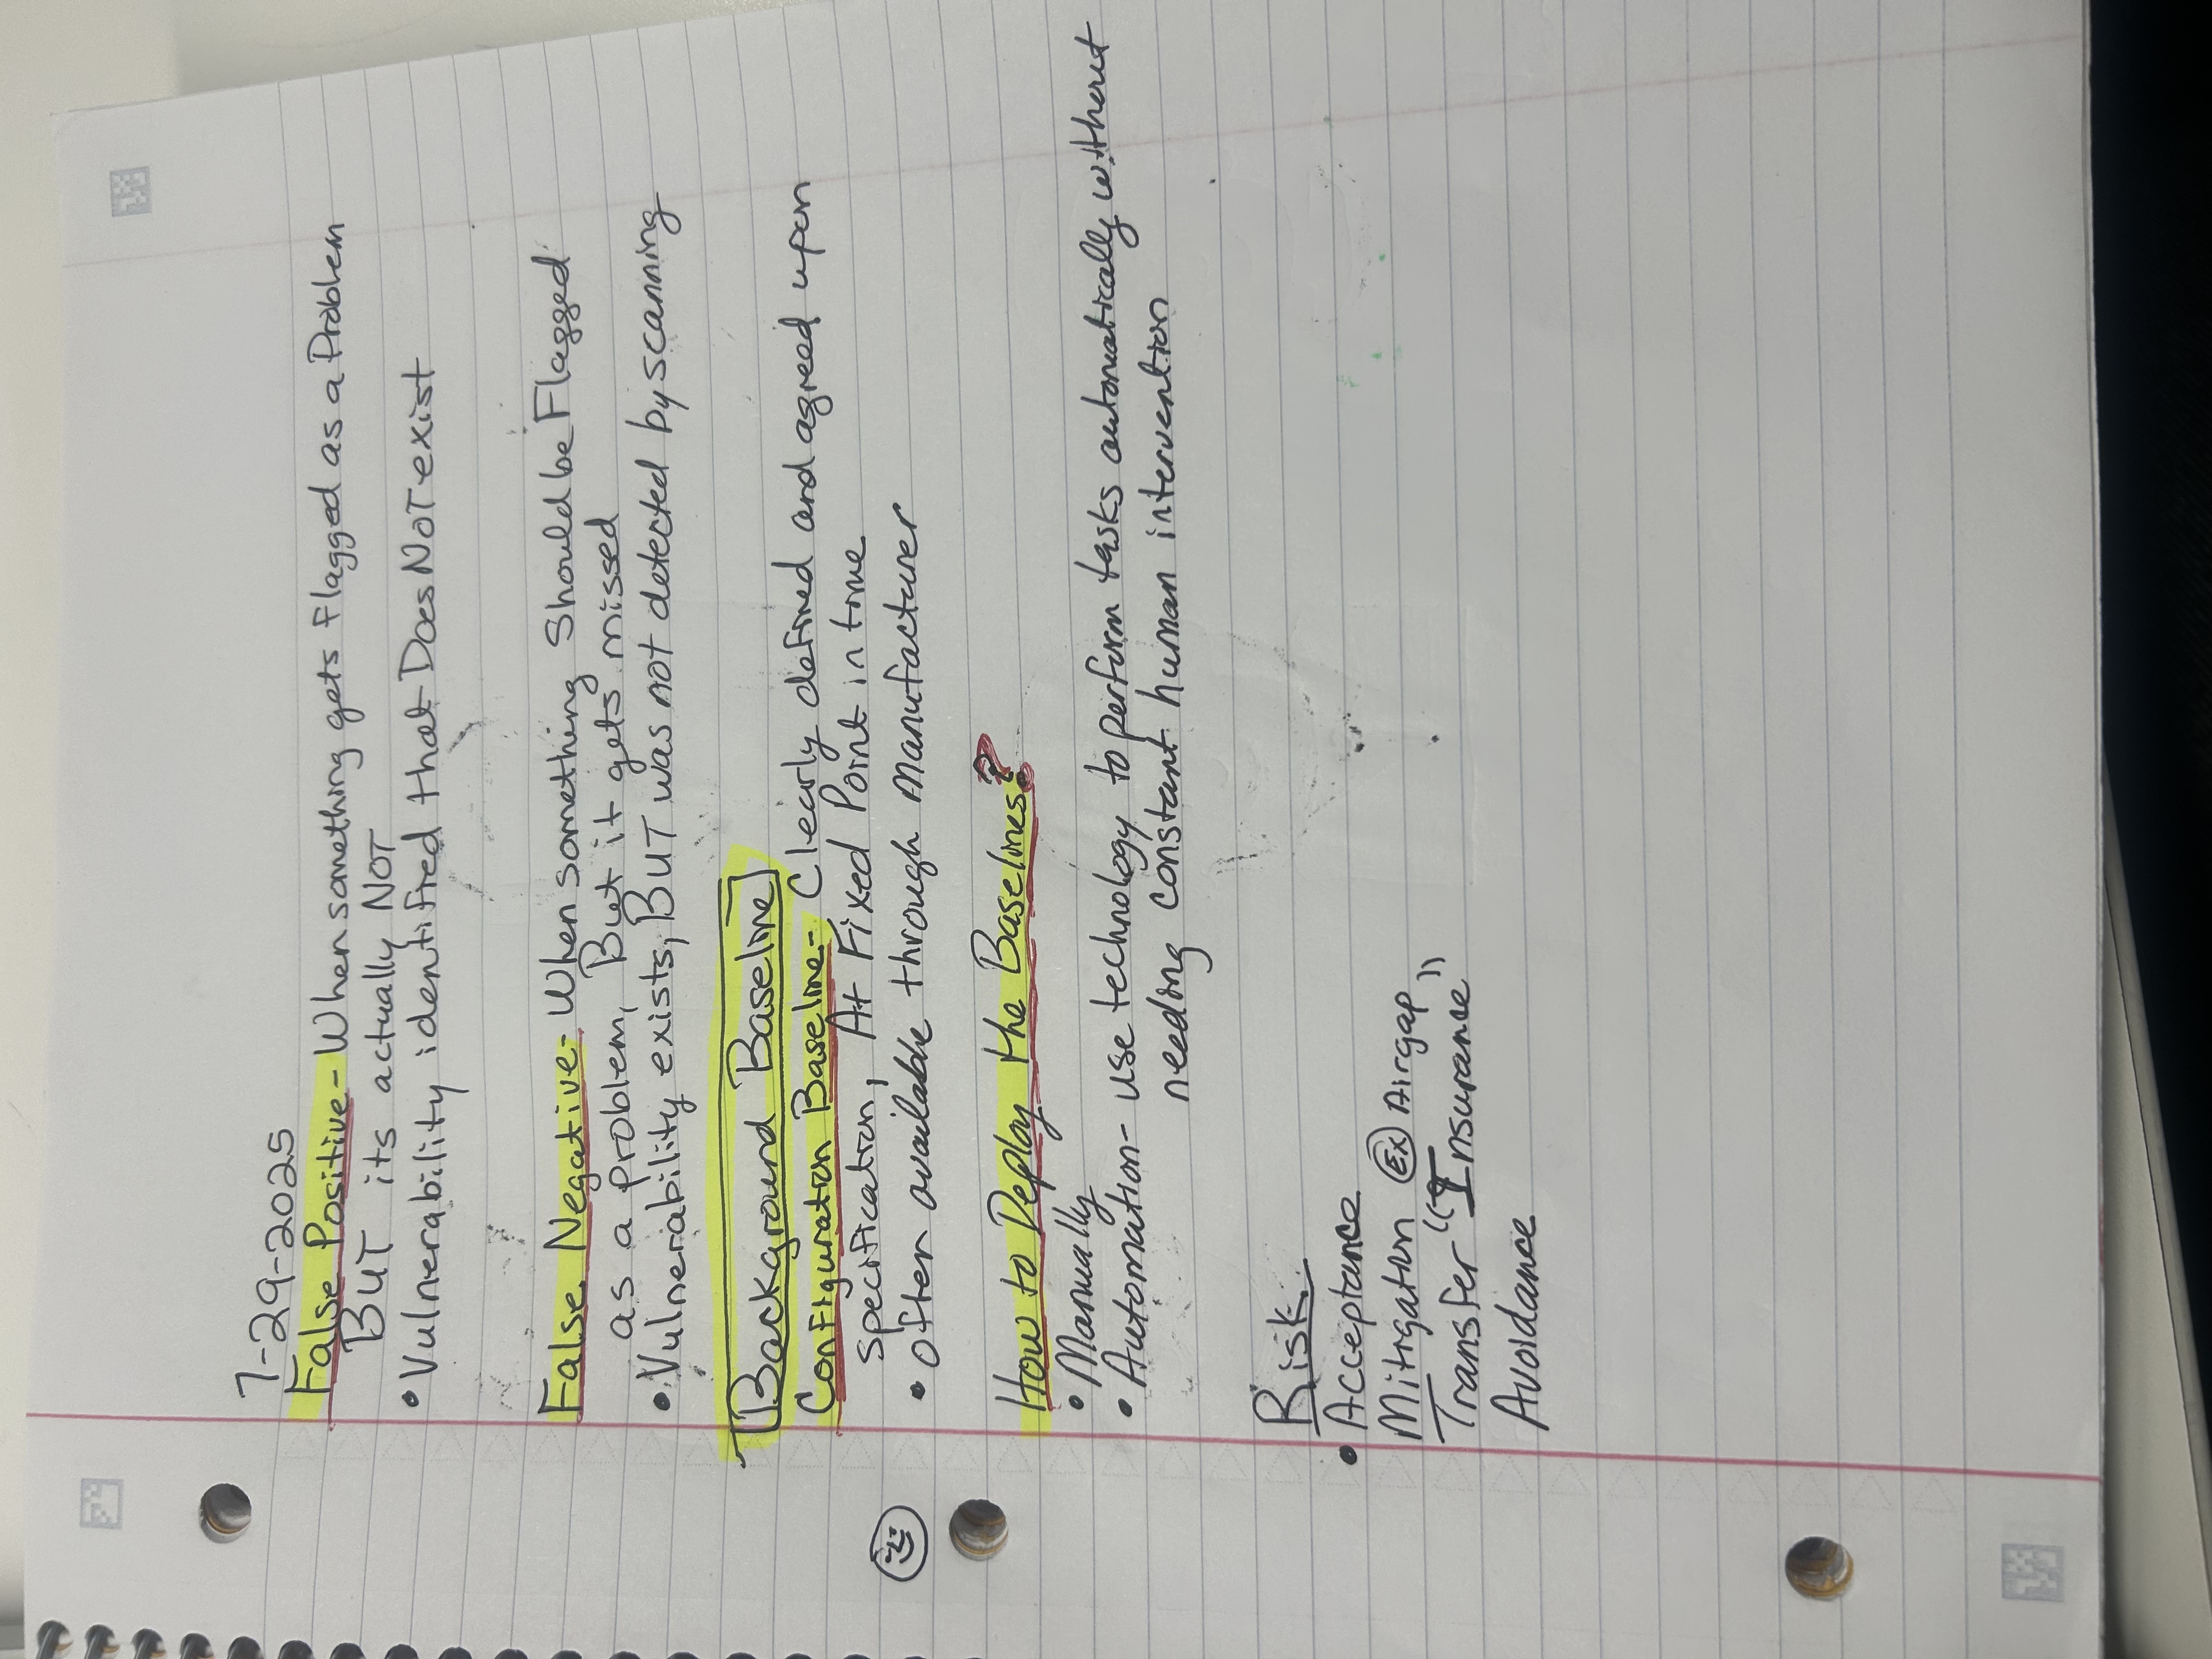 7-29-2025
False Positive - When something gets Flagged as a Problem
BUT its actually NOT
• Vulnerability identified that Does NOT exist
False Negative - When something Should be Flagged
as a problem, But it gets missed
• Vulnerability exists, BUT was not detected by scanning
[Background Baseline]
Configuration Baseline - Clearly defined and agreed upon
specification, At Fixed Point in time
• often available through manufacturer
How to Deploy the Baselines?
• Manually
• Automation - use technology to perform tasks automatically without
needing constant human intervention
Risk
• Acceptance
Mitigation Ex Airgap
Transfer "Insurance"
Avoidance